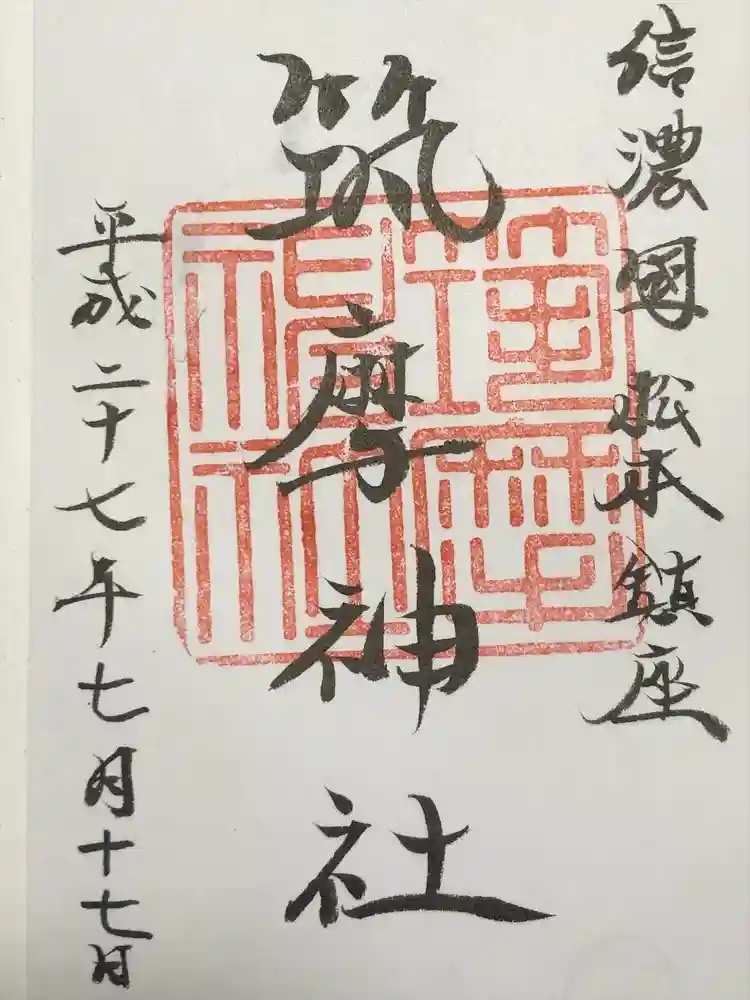 信濃國松本鎮座
筑摩神社
平成二十七年七月十七日